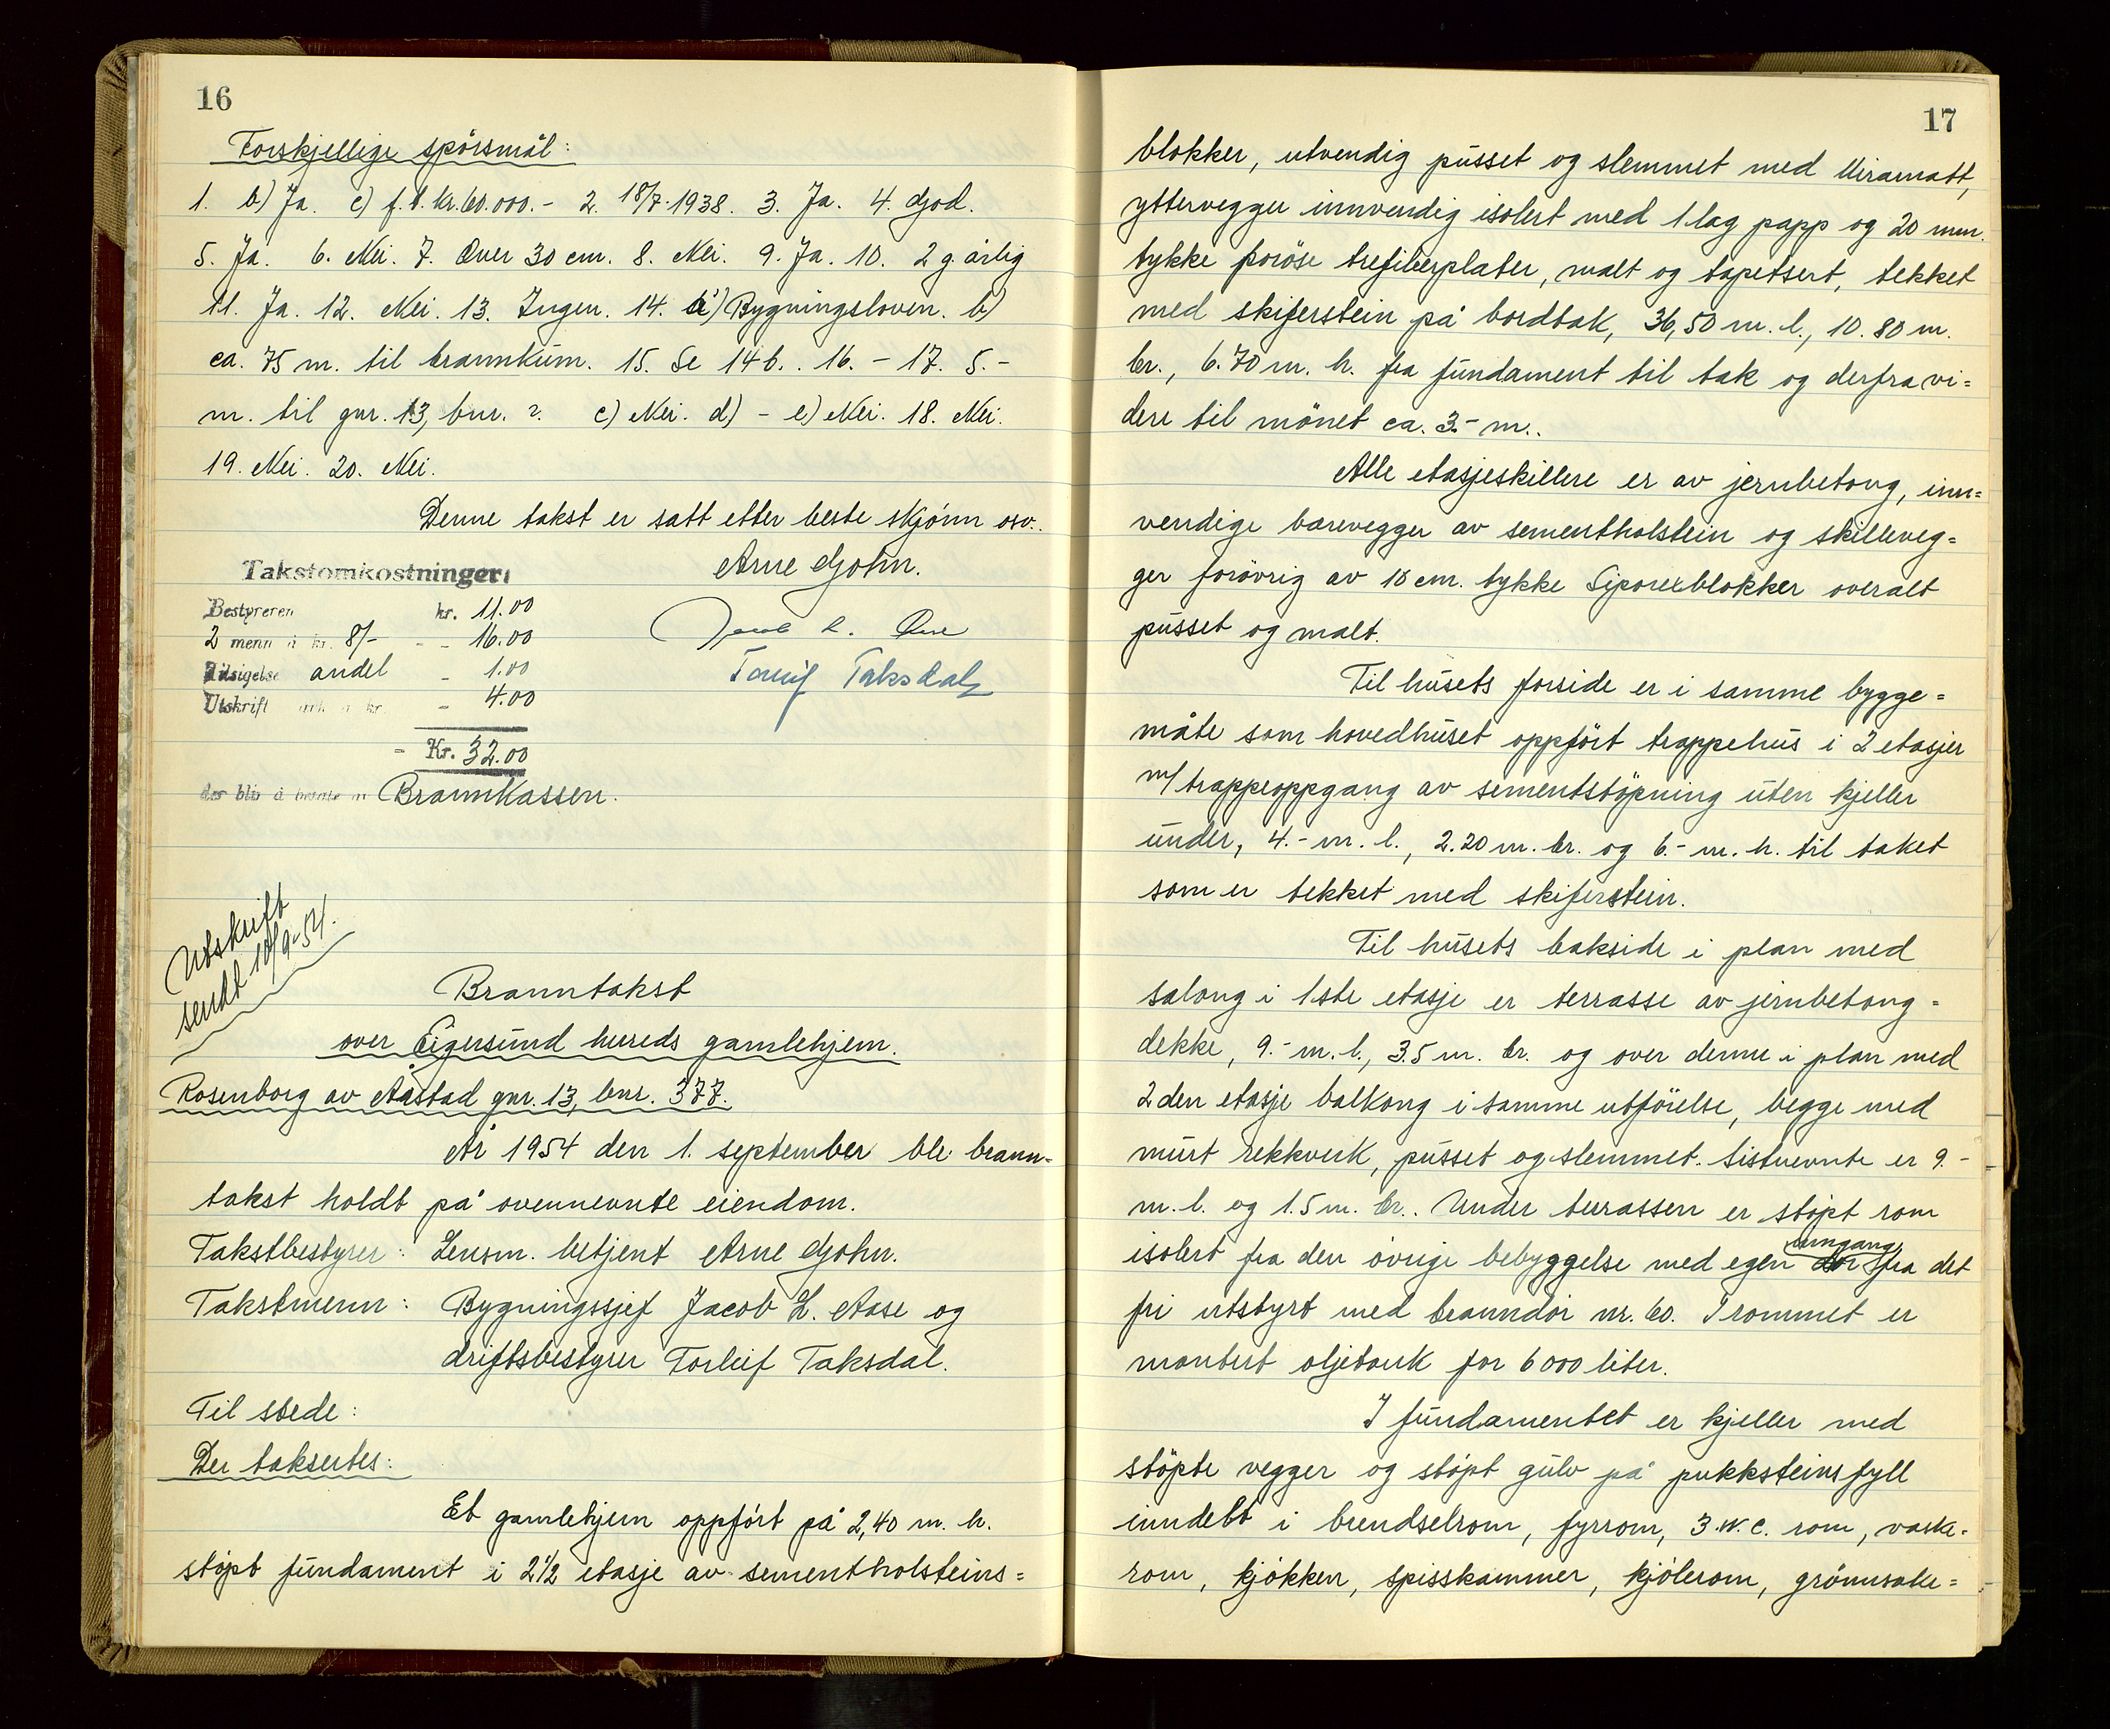 16
Forskjellige spörsmål:
1. b) Ja. c) f.t. kr. 60.000.- 2. 18/7-1938. 3. Ja. 4. God.
5. Ja. 6. Nei. 7. Over 30 cm. 8. Nei. 9. Ja. 10. 2 g. årlig
11. Ja. 12. Nei. 13. Ingen. 14. a) Bygningsloven. b)
ca. 75 m. til brannkum. 15. Se 14 b.. 16. - 17. 5.-
m. til gnr. 13, bnr. 2. c) Nei. d) - e) Nei. 18. Nei.
19. Nei. 20. Nei.
Denne takst er satt etter beste skjönn osv..
Arne Gjohn.
Takstomkostninger:
Bestyreren kr. 11.00
2 menn à kr. 8/- - - 16.00
Tilsigelse andel - 1.00
Utskrift ark à kr. - 4.00
- Kr. 32.00
der blir å betale av Brannkassen.
Jacob L. Aase
Torleif Taksdal
Utskrift
sendt 10/9-54.
Branntakst
over Eigersund hereds gamlehjem.
Rosenborg av Årstad gnr. 13, bnr. 377.
År 1954 den 1. september ble brann-
takst holdt på ovennevnte eiendom.
Takstbestyrer: Lensm. betjent Arne Gjohn.
Takstmenn: Bygningssjef Jacob L. Aase og
driftsbestyrer Torleif Taksdal.
Til stede:
Der taksertes:
Et gamlehjem oppfört på 2,40 m. h.
stöpt fundament i 2 1/2 etasje av sementholsteins=
17
blokker, utvendig pusset og slemmet med Miramatt,
yttervegger innvendig isolert med 1 lag papp og 20 mm.
tykke poröse trefiberplater, malt og tapetsert, tekket
med skiferstein på bordtak, 36,50 m. l., 10.80 m.
br., 6.70 m. h. fra fundament til tak og derfra vi=
dere til mönet ca. 3.- m..
Alle etasjeskillere er av jernbetong, inn=
vendige bærevegger av sementholstein og skilleveg=
ger forövrig av 10 cm. tykke Siporexblokker overalt
pusset og malt.
Til husets forside er i samme bygge=
måte som hovedhuset oppfört trappehus i 2 etasjer
m/ trappeoppgang av sementstöpning uten kjeller
under, 4.- m. l., 2.20 m. br. og 6.- m. h. til taket
som er tekket med skiferstein.
Til husets bakside i plan med
salong i 1ste etasje er terrasse av jernbetong=
dekke, 9.- m. l., 3.5 m. br. og over denne i plan med
2 den etasje balkong i samme utförelse, begge med
murt rekkverk, pusset og slemmet. Sistnevnte er 9.-
m. l. og 1.5 m. br.. Under terrassen er stöpt rom
isolert fra den övrige bebyggelse med egen inngang fra det
fri utstyrt med branndör nr. 60. I rommet er
montert oljetank for 6000 liter.
I fundamentet er kjeller med
stöpte vegger og stöpt gulv på pukksteinsfyll
inndelt i brendselrom, fyrrom, 3 W.C. rom, vaske=
rom, kjökken, spisskammer, kjölerom, grönnsake=